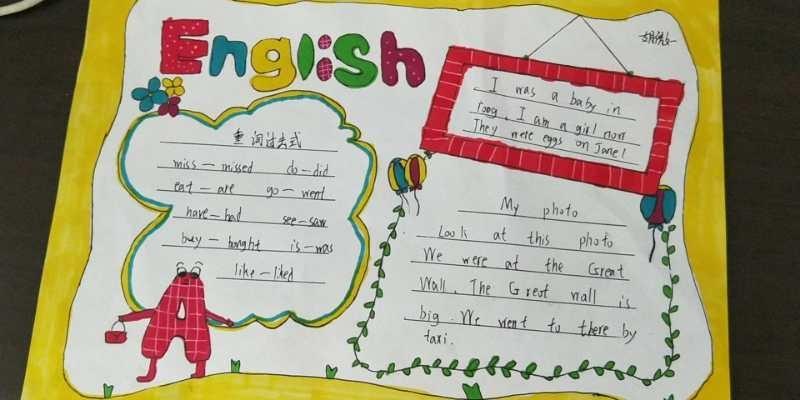 English
重词过去式
miss—missed do—did
eat—ate go—went
have—had see—saw
buy—bought is—was
like—liked
I was a baby in
I am a girl now
They were eggs on June 1
My photo
Look at this photo
We were at the Great
Wall. The Great wall is
big. We went to there by
taxi.